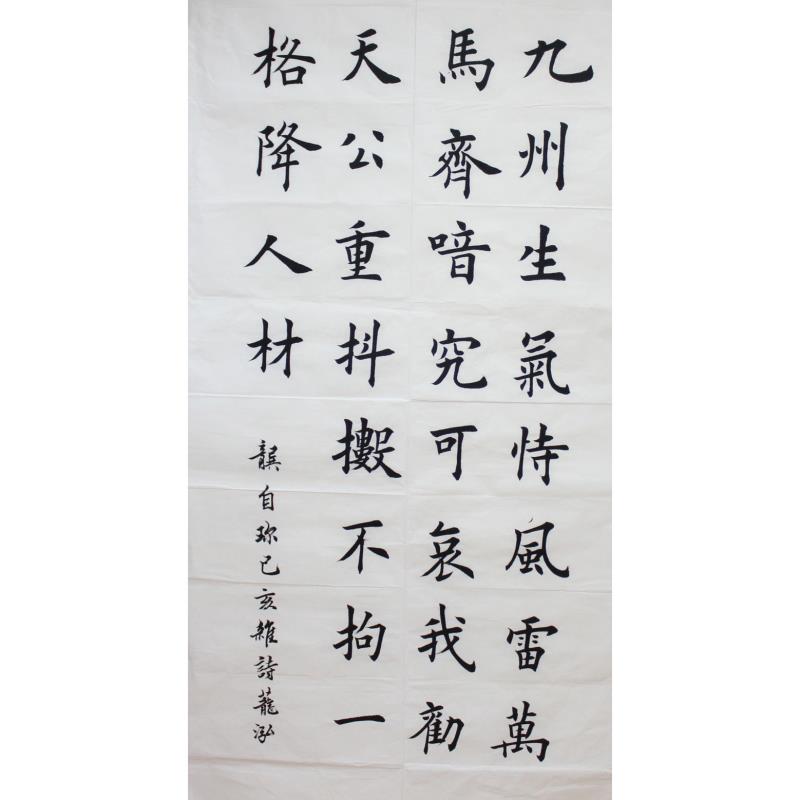 九州生氣恃風雷萬
馬齊喑究可哀我勸
天公重抖擻不拘一
格降人材
龔自珍己亥雜詩蘢泓